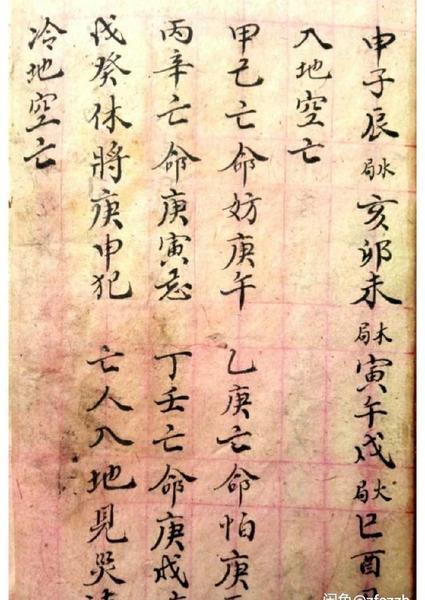 申子辰水局亥卯未木局寅午戌火局巳酉
入地空亡
甲己亡命妨庚午 乙庚亡命怕庚
丙辛亡命庚寅忌 丁壬亡命庚戌
戊癸休將庚申犯 亡人入地見哭
冷地空亡